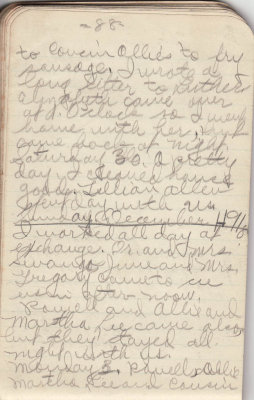 -88-
to Cousin Allie's to fry
sausage. I wrote a
long letter to Ruther
came over
at 2. O'clock so I went
home with her,
came back at night.
Saturday 30. A pretty
day I cleaned house
good. Lillian Allen
spent day with us.
Sunday December 1, 1916
I worked all day at
exchange. Dr. and Mrs.
and Mrs.
Gregory came to see
us in after-noon.
Powell and Allie and
Martha Lee came also
but they stayed all
night with us.
Monday 2. Powell & Allie
Martha Lee and Cousin